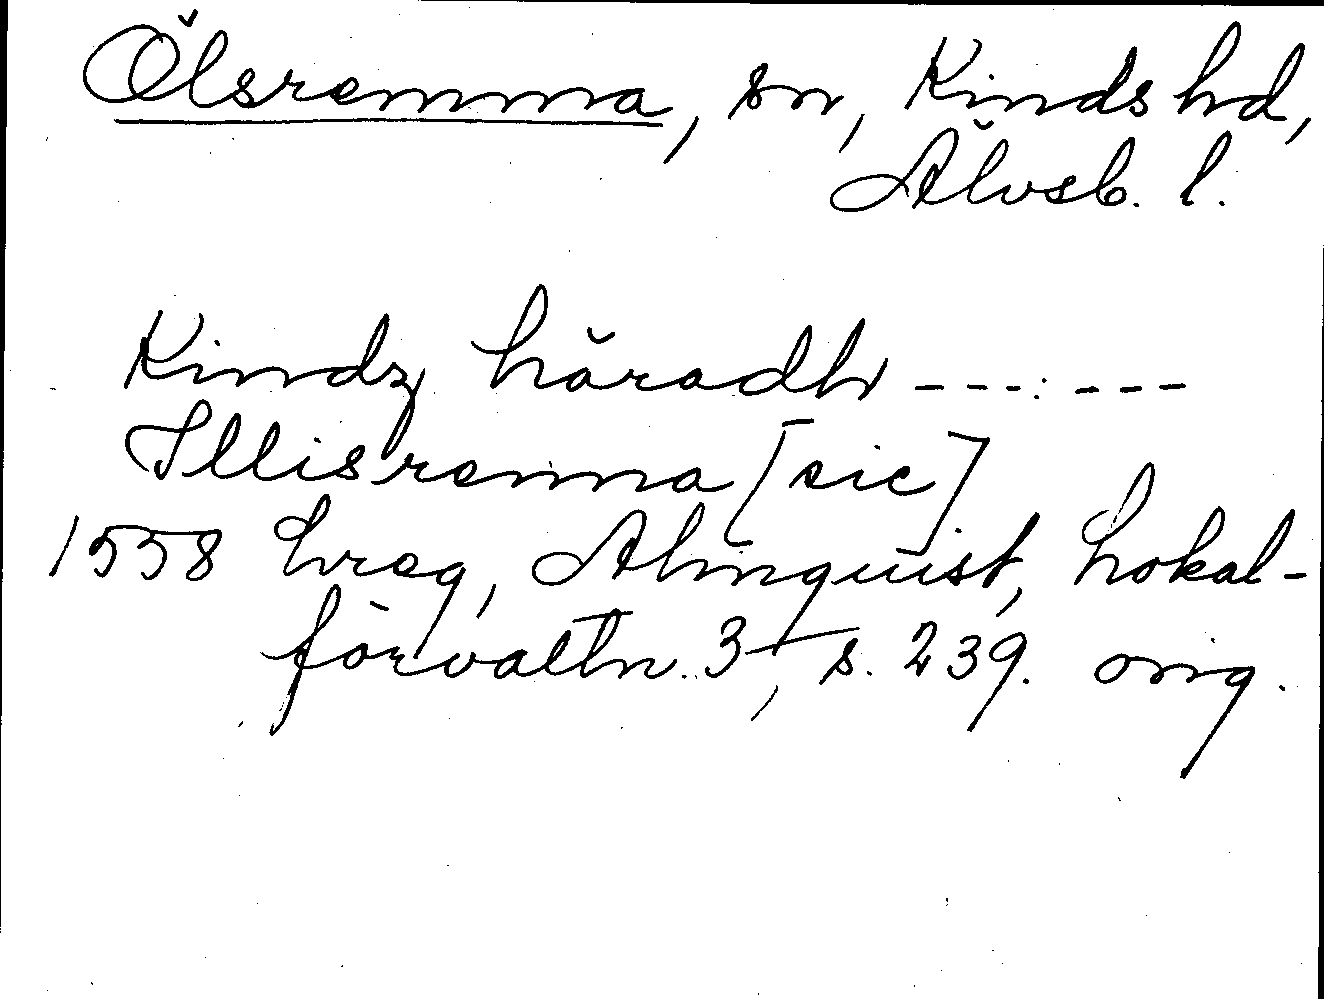 Ölsremma, sn, Kinds hd,
Älvsb. l.
Kindz häradh ---:---
Illisremna [sic]
1558 hreg, Almquist, Lokal-
förvaltn. 3, s. 239. orig.